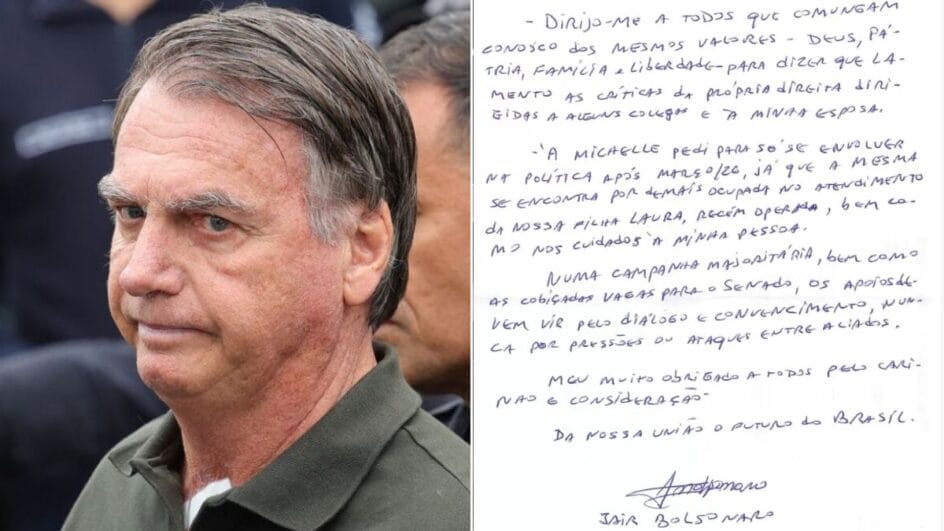 - DIRIJO-ME A TODOS QUE COMUNGAM
CONOSCO DOS MESMOS VALORES - DEUS, PÁ-
TRIA, FAMÍLIA e LIBERDADE - PARA DIZER QUE LA-
MENTO AS CRÍTICAS DA PRÓPRIA DIREITA DIRI-
GIDAS A ALGUNS COLEGAS E À MINHA ESPOSA.
- À MICHELLE PEDI PARA SÓ SE ENVOLVER
NA POLÍTICA APÓS MARÇO/26, JÁ QUE A MESMA
SE ENCONTRA POR DEMAIS OCUPADA NO ATENDIMENTO
DA NOSSA FILHA LAURA, RECÉM OPERADA, BEM CO-
MO NOS CUIDADOS À MINHA PESSOA.
NUMA CAMPANHA MAJORITÁRIA, BEM COMO
AS COBIÇADAS VAGAS PARA O SENADO, OS APOIOS DE-
VEM VIR PELO DIÁLOGO E CONVENCIMENTO, NUN-
CA POR PRESSÕES OU ATAQUES ENTRE ALIADOS.
MEU MUITO OBRIGADO A TODOS PELO CARI-
NHO E CONSIDERAÇÃO-
DA NOSSA UNIÃO O FUTURO do BRASIL.
JAIR BOLSONARO